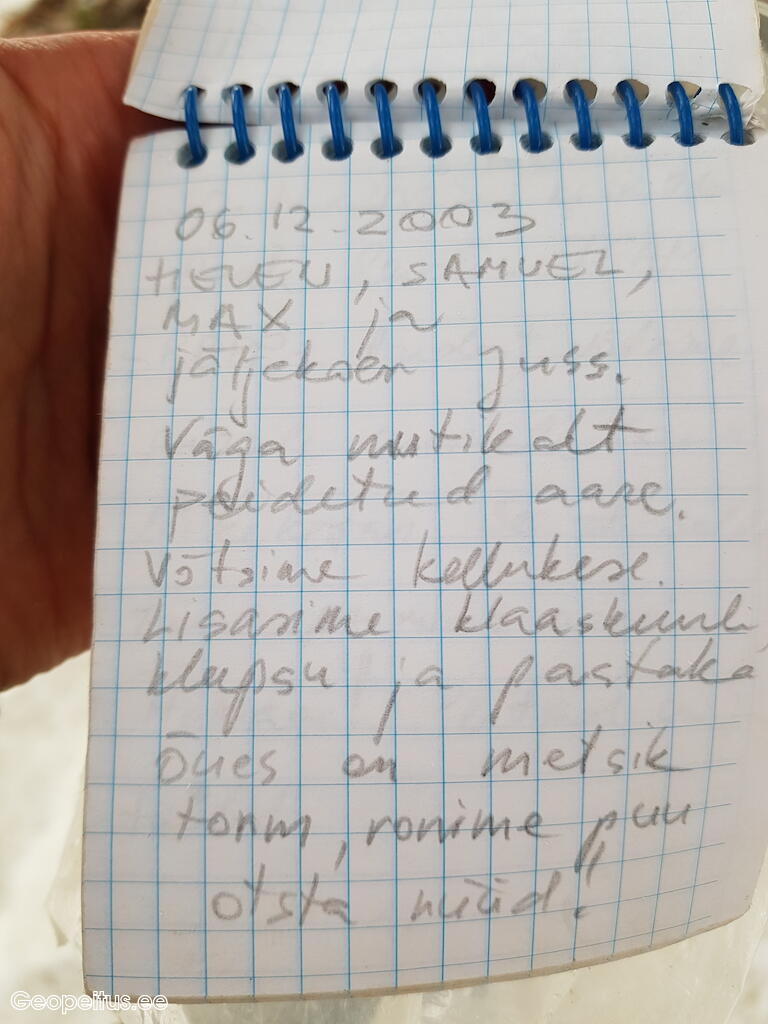 06.12.2003
HELEN, SAMUEL,
MAX ja
jäljekoer Juss.
Väga nutikalt
peidetud aare.
Võtsime kellukese.
Lisasime klaaskuuli,
klupsu ja pastaka
Õues on metsik
torm, ronime puu
otsta nüüd!
Geopeitus.ee